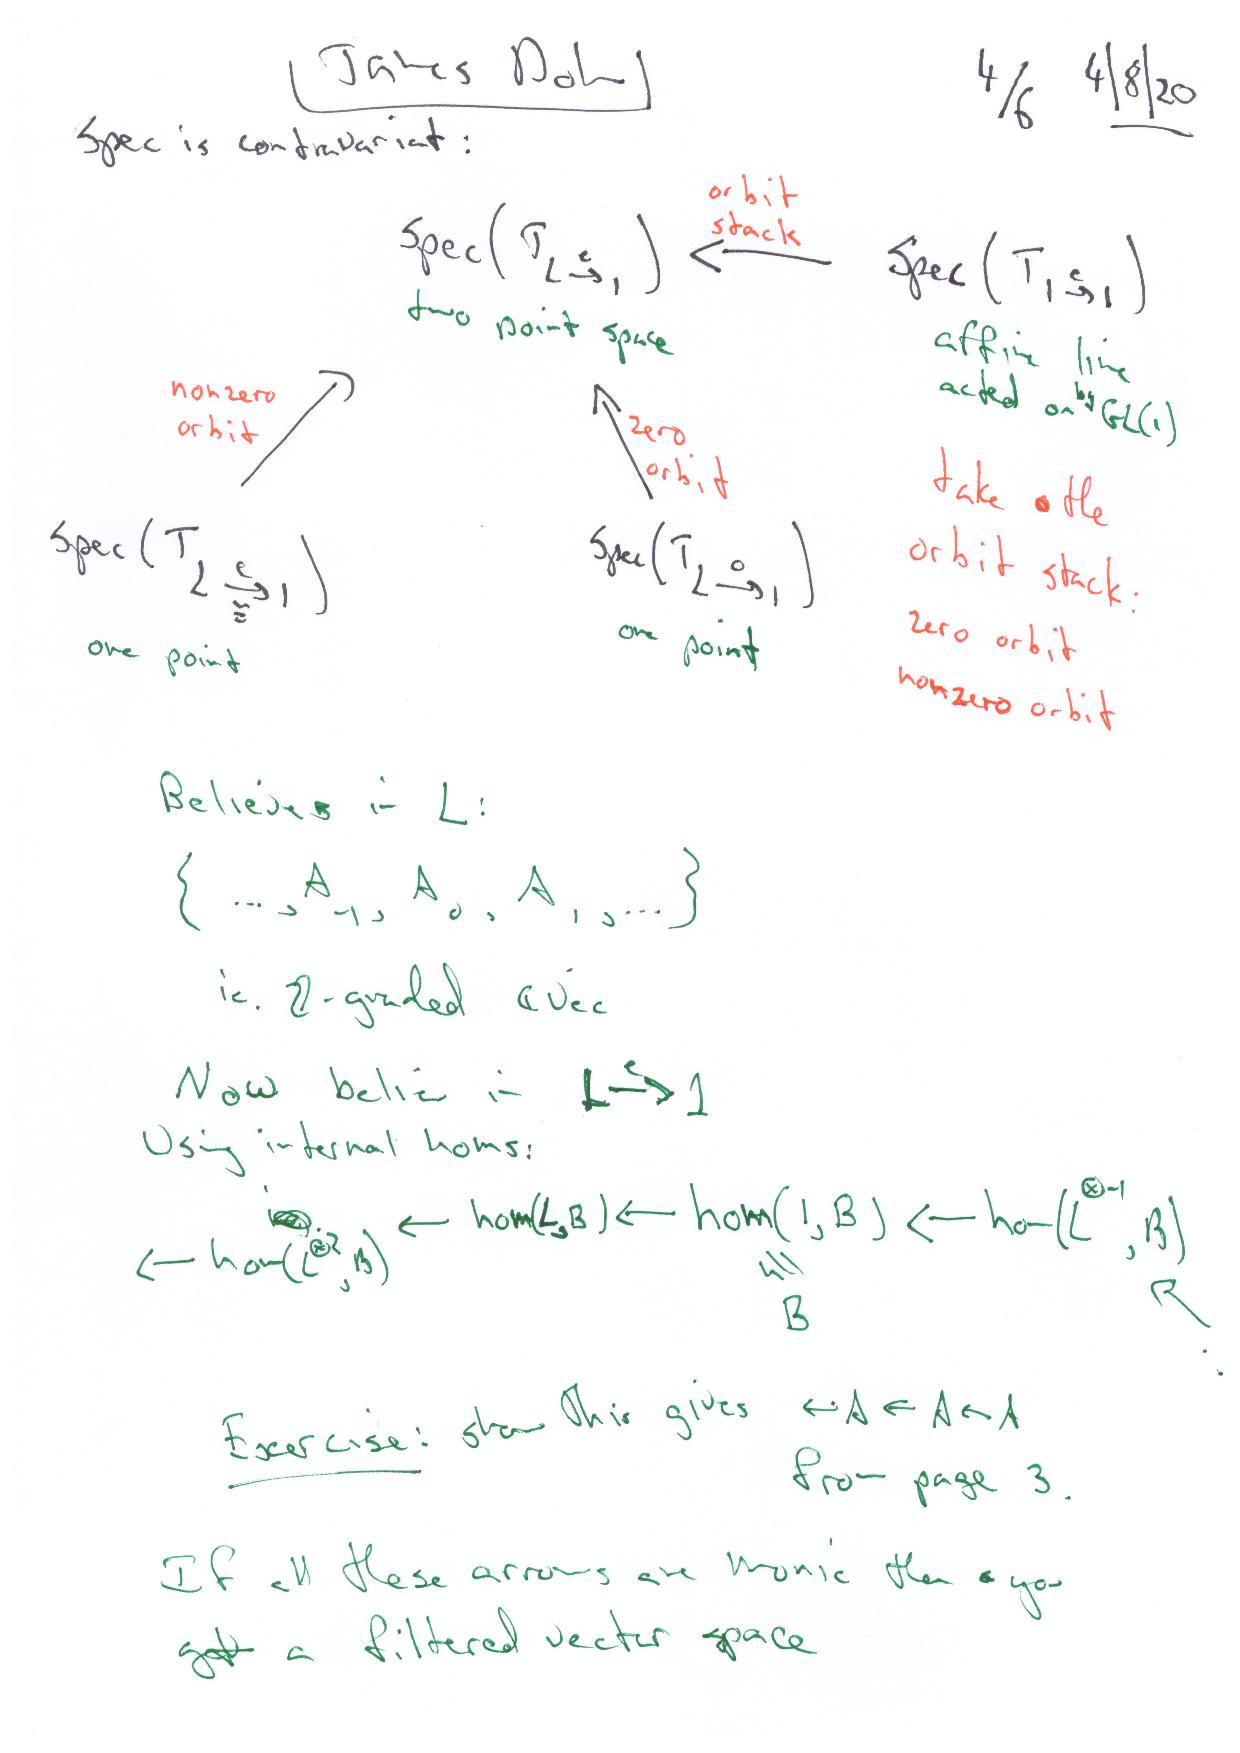 James Dol
4/6 4/8/20
Spec is contravariat:
orbit
stack
Spec(T L →e 1) ← Spec(T 1 →e 1)
two point space
affine line
acted on by GL(1)
nonzero
orbit
zero
orbit
take the
orbit stack:
zero orbit
nonzero orbit
Spec(T L →e ≅ 1)
one point
Spec(T L →0 1)
one point
Believes in L:
{ ..., A₋₁, A₀, A₁, ... }
ie. ℤ-graded vec
Now believe in L →e 1
Using internal homs:
← hom(L⊗2, B) ← hom(L,B) ← hom(1,B) ← hom(L⊗-1, B)
B
Exercise: show this gives ← A ← A ← A
from page 3.
If all these arrows are monic then you
get a filtered vector space